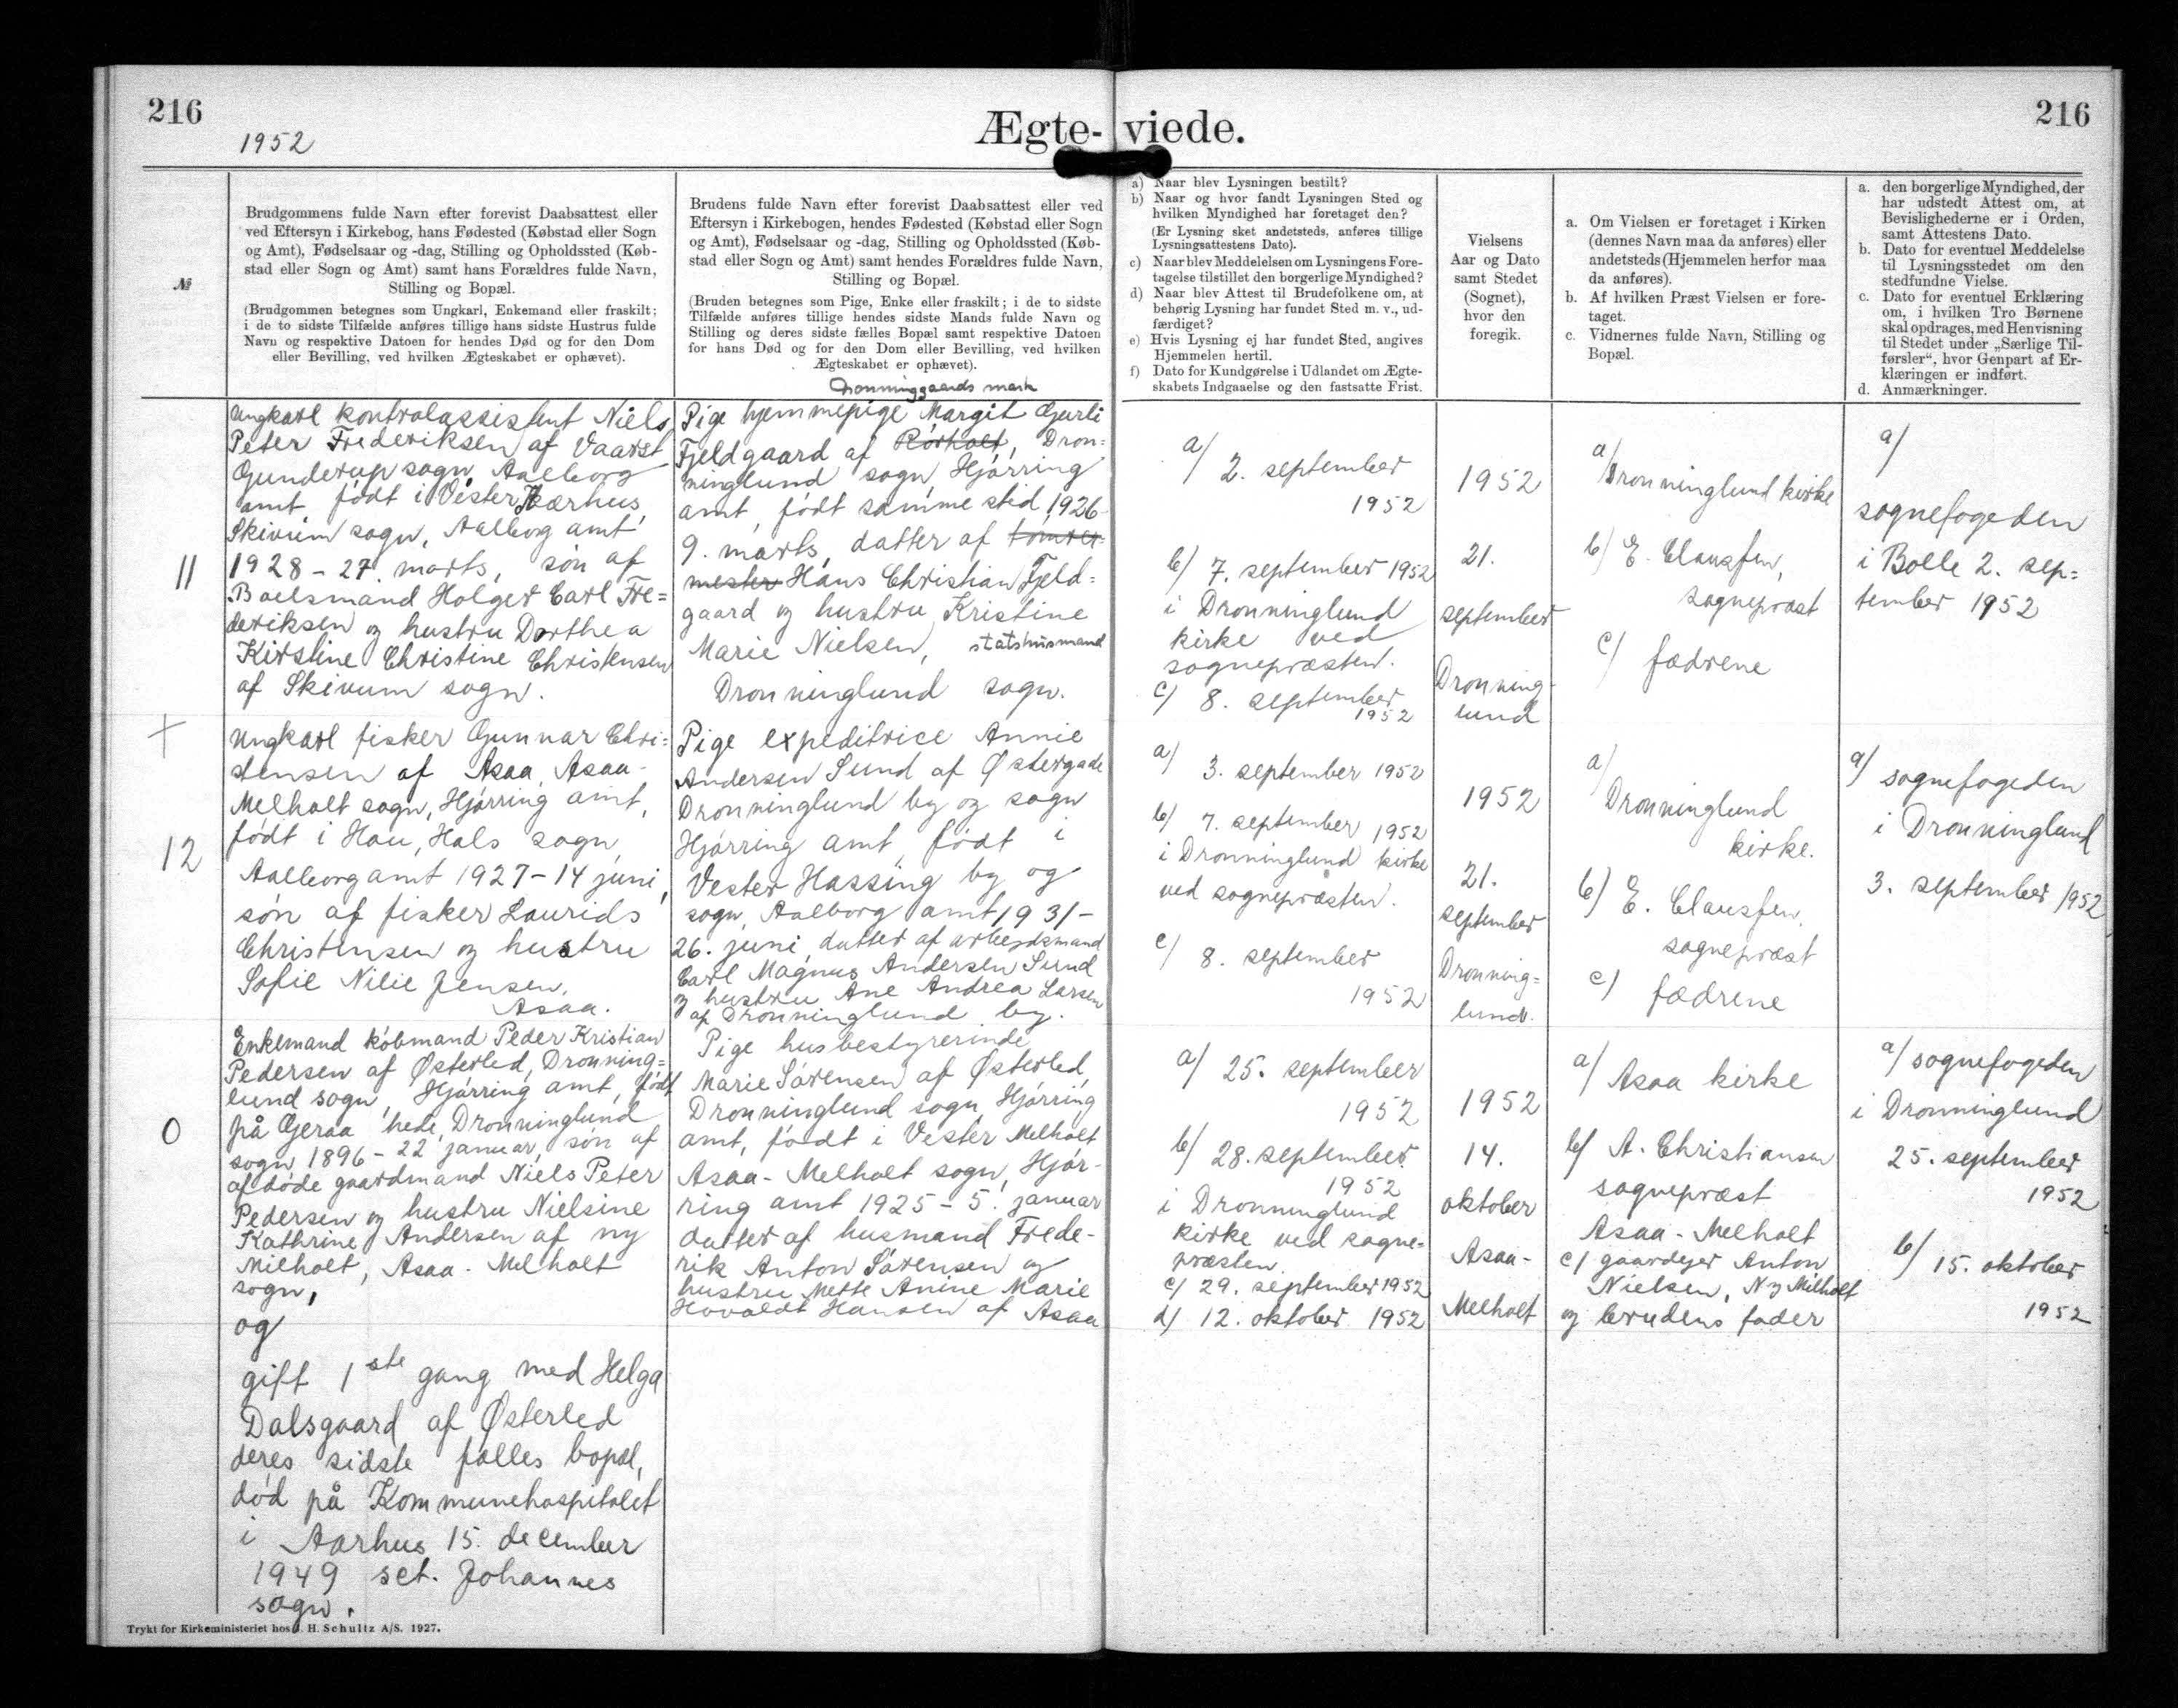 216
1952
Ægte-viede.
216
№
Brudgommens fulde Navn efter forevist Daabsattest eller
ved Eftersyn i Kirkebog, hans Fødested (Købstad eller Sogn
og Amt), Fødselsaar og -dag, Stilling og Opholdssted (Køb-
stad eller Sogn og Amt) samt hans Forældres fulde Navn,
Stilling og Bopæl.
(Brudgommen betegnes som Ungkarl, Enkemand eller fraskilt;
i de to sidste Tilfælde anføres tillige hans sidste Hustrus fulde
Navn og respektive Datoen for hendes Død og for den Dom
eller Bevilling, ved hvilken Ægteskabet er ophævet).
Brudens fulde Navn efter forevist Daabsattest eller ved
Eftersyn i Kirkebogen, hendes Fødested (Købstad eller Sogn
og Amt), Fødselsaar og -dag, Stilling og Opholdssted (Køb-
stad eller Sogn og Amt) samt hendes Forældres fulde Navn,
Stilling og Bopæl.
(Bruden betegnes som Pige, Enke eller fraskilt; i de to sidste
Tilfælde anføres tillige hendes sidste Mands fulde Navn og
Stilling og deres sidste fælles Bopæl samt respektive Datoen
for hans Død og for den Dom eller Bevilling, ved hvilken
Ægteskabet er ophævet).
a) Naar blev Lysningen bestilt?
b) Naar og hvor fandt Lysningen Sted og
hvilken Myndighed har foretaget den?
(Er Lysning sket andetsteds, anføres tillige
Lysningsattestens Dato).
c) Naar blev Meddelelsen om Lysningens Fore-
tagelse tilstillet den borgerlige Myndighed?
d) Naar blev Attest til Brudefolkene om, at
behørig Lysning har fundet Sted m. v., ud-
færdiget?
e) Hvis Lysning ej har fundet Sted, angives
Hjemmelen hertil.
f) Dato for Kundgørelse i Udlandet om Ægte-
skabets Indgaaelse og den fastsatte Frist.
Vielsens
Aar og Dato
samt Stedet
(Sognet),
hvor den
foregik.
a. Om Vielsen er foretaget i Kirken
(dennes Navn maa da anføres) eller
andetsteds (Hjemmelen herfor maa
da anføres).
b. Af hvilken Præst Vielsen er fore-
taget.
c. Vidnernes fulde Navn, Stilling og
Bopæl.
a. den borgerlige Myndighed, der
har udstedt Attest om, at
Bevislighederne er i Orden,
samt Attestens Dato.
b. Dato for eventuel Meddelelse
til Lysningsstedet om den
stedfundne Vielse.
c. Dato for eventuel Erklæring
om, i hvilken Tro Børnene
skal opdrages, med Henvisning
til Stedet under „Særlige Til-
førsler“, hvor Genpart af Er-
klæringen er indført.
d. Anmærkninger.
11
Ungkarl kontrolassistent Niels
Peter Frederiksen af Vaarst
Gunderup sogn, Aalborg
amt, født i Vester Kærhus,
Skivum sogn, Aalborg amt
1928 - 27. marts, søn af
Boelsmand Holger Carl Fre=
deriksen og hustru Dorthea
Kirstine Christine Christensen
af Skivum sogn.
Dronninggaards mark
Pige hjemmepige Margit Gurli
Fjeldgaard af Rørholt, Dron=
ninglund sogn, Hjørring
amt, født samme sted 1926-
9. marts, datter af tømrer-
mester Hans Christian Fjeld=
gaard og hustru Kristine
Marie Nielsen, statshusmand
Dronninglund sogn.
a/ 2. september
1952
b/ 7. september 1952
i Dronninglund
kirke ved
sognepræsten.
c/ 8. september
1952
1952
21.
september
Dronning-
lund
a/ Dronninglund kirke
b/ E. Clausen,
sognepræst
c/ fædrene
a/
sognefogeden
i Bolle 2. sep=
tember 1952
+
12
Ungkarl fisker Gunnar Chri=
stensen af Asaa, Asaa-
Melholt sogn, Hjørring amt,
født i Hou, Hals sogn
Aalborg amt 1927 - 14 juni,
søn af fisker Laurids
Christensen og hustru
Sofie Nilie Jensen,
Asaa.
Pige expeditrice Annie
Andersen Sund af Østergade
Dronninglund by og sogn
Hjørring amt, født i
Vester Hassing by og
sogn, Aalborg amt 1931-
26. juni, datter af arbejdsmand
Carl Magnus Andersen Sund
og hustru Ane Andrea Larsen
af Dronninglund by.
a/ 3. september 1952
b/ 7. september 1952
i Dronninglund kirke
ved sognepræsten.
c/ 8. september
1952
1952
21.
september
Dronning=
lund.
a/
Dronninglund
kirke.
b/ E. Clausen,
sognepræst
c/ fædrene
a/ sognefogeden
i Dronninglund
3. september 1952
0
Enkemand købmand Peder Kristian
Pedersen af Østerled, Dronning=
lund sogn, Hjørring amt, født
på Gjeraa hede, Dronninglund
sogn, 1896 - 22 januar, søn af
afdøde gaardmand Niels Peter
Pedersen og hustru Nielsine
Kathrine Andersen af ny
Milholt, Asaa-Melholt
sogn,
og
gift 1ste gang med Helga
Dalsgaard af Østerled
deres sidste fælles bopæl,
død på Kommunehospitalet
i Aarhus 15. december
1949 sct. Johannes
sogn.
Pige husbestyrerinde
Marie Sørensen af Østerled,
Dronninglund sogn, Hjørring
amt, født i Vester Melholt
Asaa-Melholt sogn, Hjør-
ring amt 1925 - 5. januar
datter af husmand Frede-
rik Anton Sørensen og
hustru Mette Anine Marie
Hovaldt Hansen af Asaa
a/ 25. september
1952
b/ 28. september
1952
i Dronninglund
kirke ved sogne=
præsten.
c/ 29. september 1952
d/ 12. oktober 1952
1952
14.
oktober
Asaa-
Melholt
a/ Asaa kirke
b/ A. Christiansen
sognepræst
Asaa-Melholt
c/ gaardejer Anton
Nielsen, Ny Milholt
og brudens fader
a/ sognefogeden
i Dronninglund
25. september
1952
b/ 15. oktober
1952
Trykt for Kirkeministeriet hos J. H. Schultz A/S. 1927.